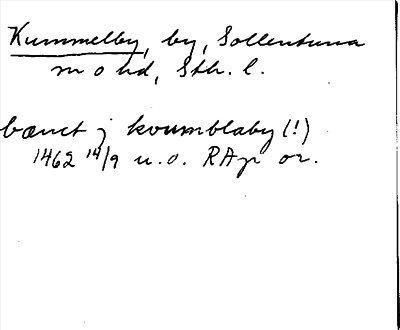 Kummelby, by, Sollentuna
sn o hd, Sth. l.
bænct j koumblaby (!)
1462 14/9 u.o. RAp or.